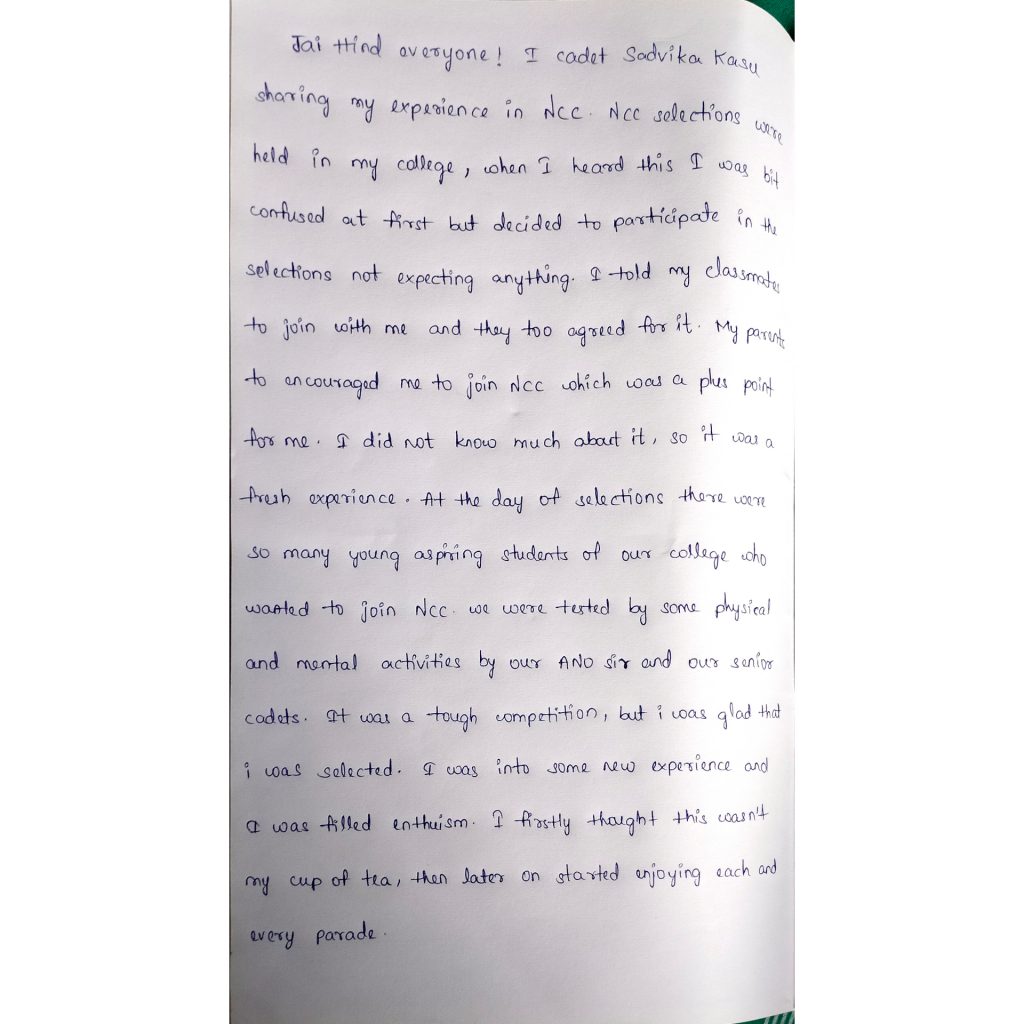 Jai Hind everyone! I cadet Sadvika Kasu
sharing my experience in NCC. NCC selections were
held in my college, when I heard this I was bit
confused at first but decided to participate in the
selections not expecting anything. I told my classmates
to join with me and they too agreed for it. My parents
to encouraged me to join NCC which was a plus point
for me. I did not know much about it, so it was a
fresh experience. At the day of selections there were
so many young aspiring students of our college who
wanted to join NCC. we were tested by some physical
and mental activities by our ANO sir and our senior
cadets. It was a tough competition, but i was glad that
i was selected. I was into some new experience and
I was filled enthuism. I firstly thought this wasn't
my cup of tea, then later on started enjoying each and
every parade.